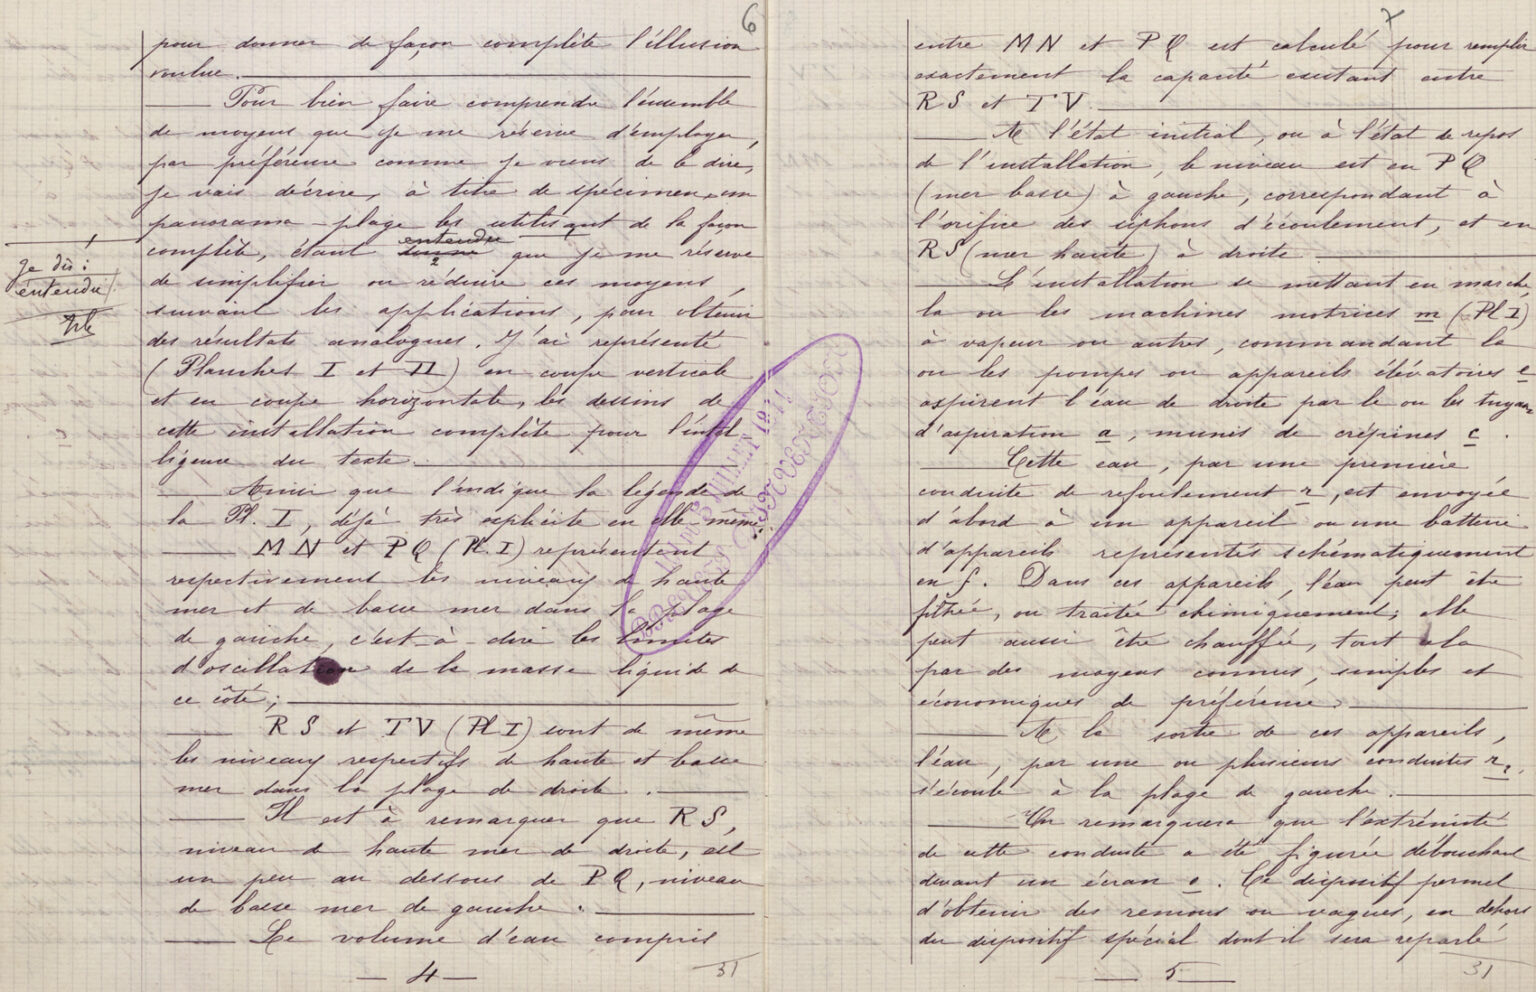 6
pour donner de façon complète l'illusion
voulue.
Pour bien faire comprendre l'ensemble
de moyens que je me réserve d'employer,
par préférence comme je viens de le dire,
je vais décrire, à titre de spécimen, un
panorama-plage les utilisant de la façon
complète, étant entendu que je me réserve
je dis :
entendu
de simplifier ou réduire ces moyens,
suivant les applications, pour obtenir
des résultats analogues. J'ai représenté
(Planches I et II) en coupe verticale
et en coupe horizontale, les dessins de
cette installation complète pour l'intel
ligence du texte.
Ainsi que l'indique la légende de
la Pl. I, déjà très explicite en elle même:
MN et PQ (Pl. I) représentent
respectivement les niveaux de haute
mer et de basse mer dans la plage
de gauche, c'est-à-dire les limites
d'oscillation de la masse liquide de
ce côté;
RS et TV (Pl I) sont de même
les niveaux respectifs de haute et basse
mer dans la plage de droite.
Il est à remarquer que RS,
niveau de haute mer de droite, est
un peu au dessous de PQ, niveau
de basse mer de gauche.
Le volume d'eau compris
— 4 —
31
7
entre MN et PQ est calculé pour remplir
exactement la capacité existant entre
RS et TV.
A l'état initial, ou à l'état de repos
de l'installation, le niveau est en PQ
(mer basse) à gauche, correspondant à
l'orifice des siphons d'écoulement, et en
RS (mer haute) à droite.
L'installation se mettant en marche,
la ou les machines motrices m (Pl I)
à vapeur ou autres, commandant la
ou les pompes ou appareils élévatoires e
aspirent l'eau de droite par le ou les tuyaux
d'aspiration a, munis de crépines c.
Cette eau, par une première
conduite de refoulement r, est envoyée
d'abord à un appareil ou une batterie
d'appareils représentés schématiquement
en f. Dans ces appareils, l'eau peut être
filtrée, ou traitée chimiquement; elle
peut aussi être chauffée, tout cela
par des moyens connus, simples et
économiques de préférence.
A la sortie de ces appareils,
l'eau, par une ou plusieurs conduites r₂,
s'écoule à la plage de gauche.
On remarquera que l'extrémité
de cette conduite a été figurée débouchant
devant un écran e. Ce dispositif permet
d'obtenir des remous ou vagues, en dehors
du dispositif spécial dont il sera reparlé
— 5 —
31